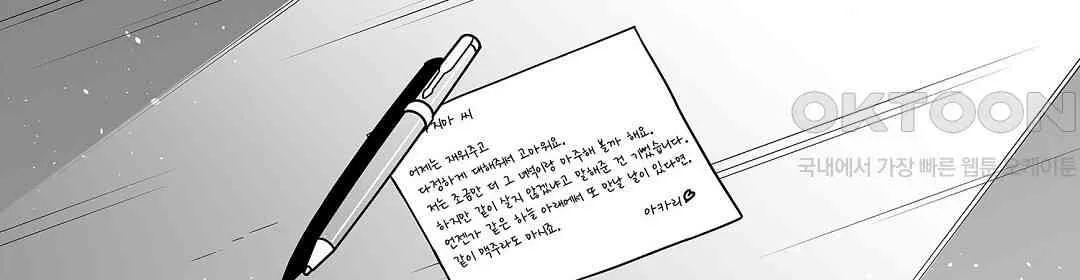 지마 씨
어제는 재워주고
다정하게 대해줘서 고마워요.
저는 조금만 더 그 녀석이랑 마주해 볼까 해요.
하지만 같이 살지 않겠냐고 말해준 건 기뻤습니다.
언젠가 같은 하늘 아래에서 또 만날 날이 있다면,
같이 맥주라도 마시죠.
아카리
OKTOON
국내에서 가장 빠른 웹툰 오케이툰